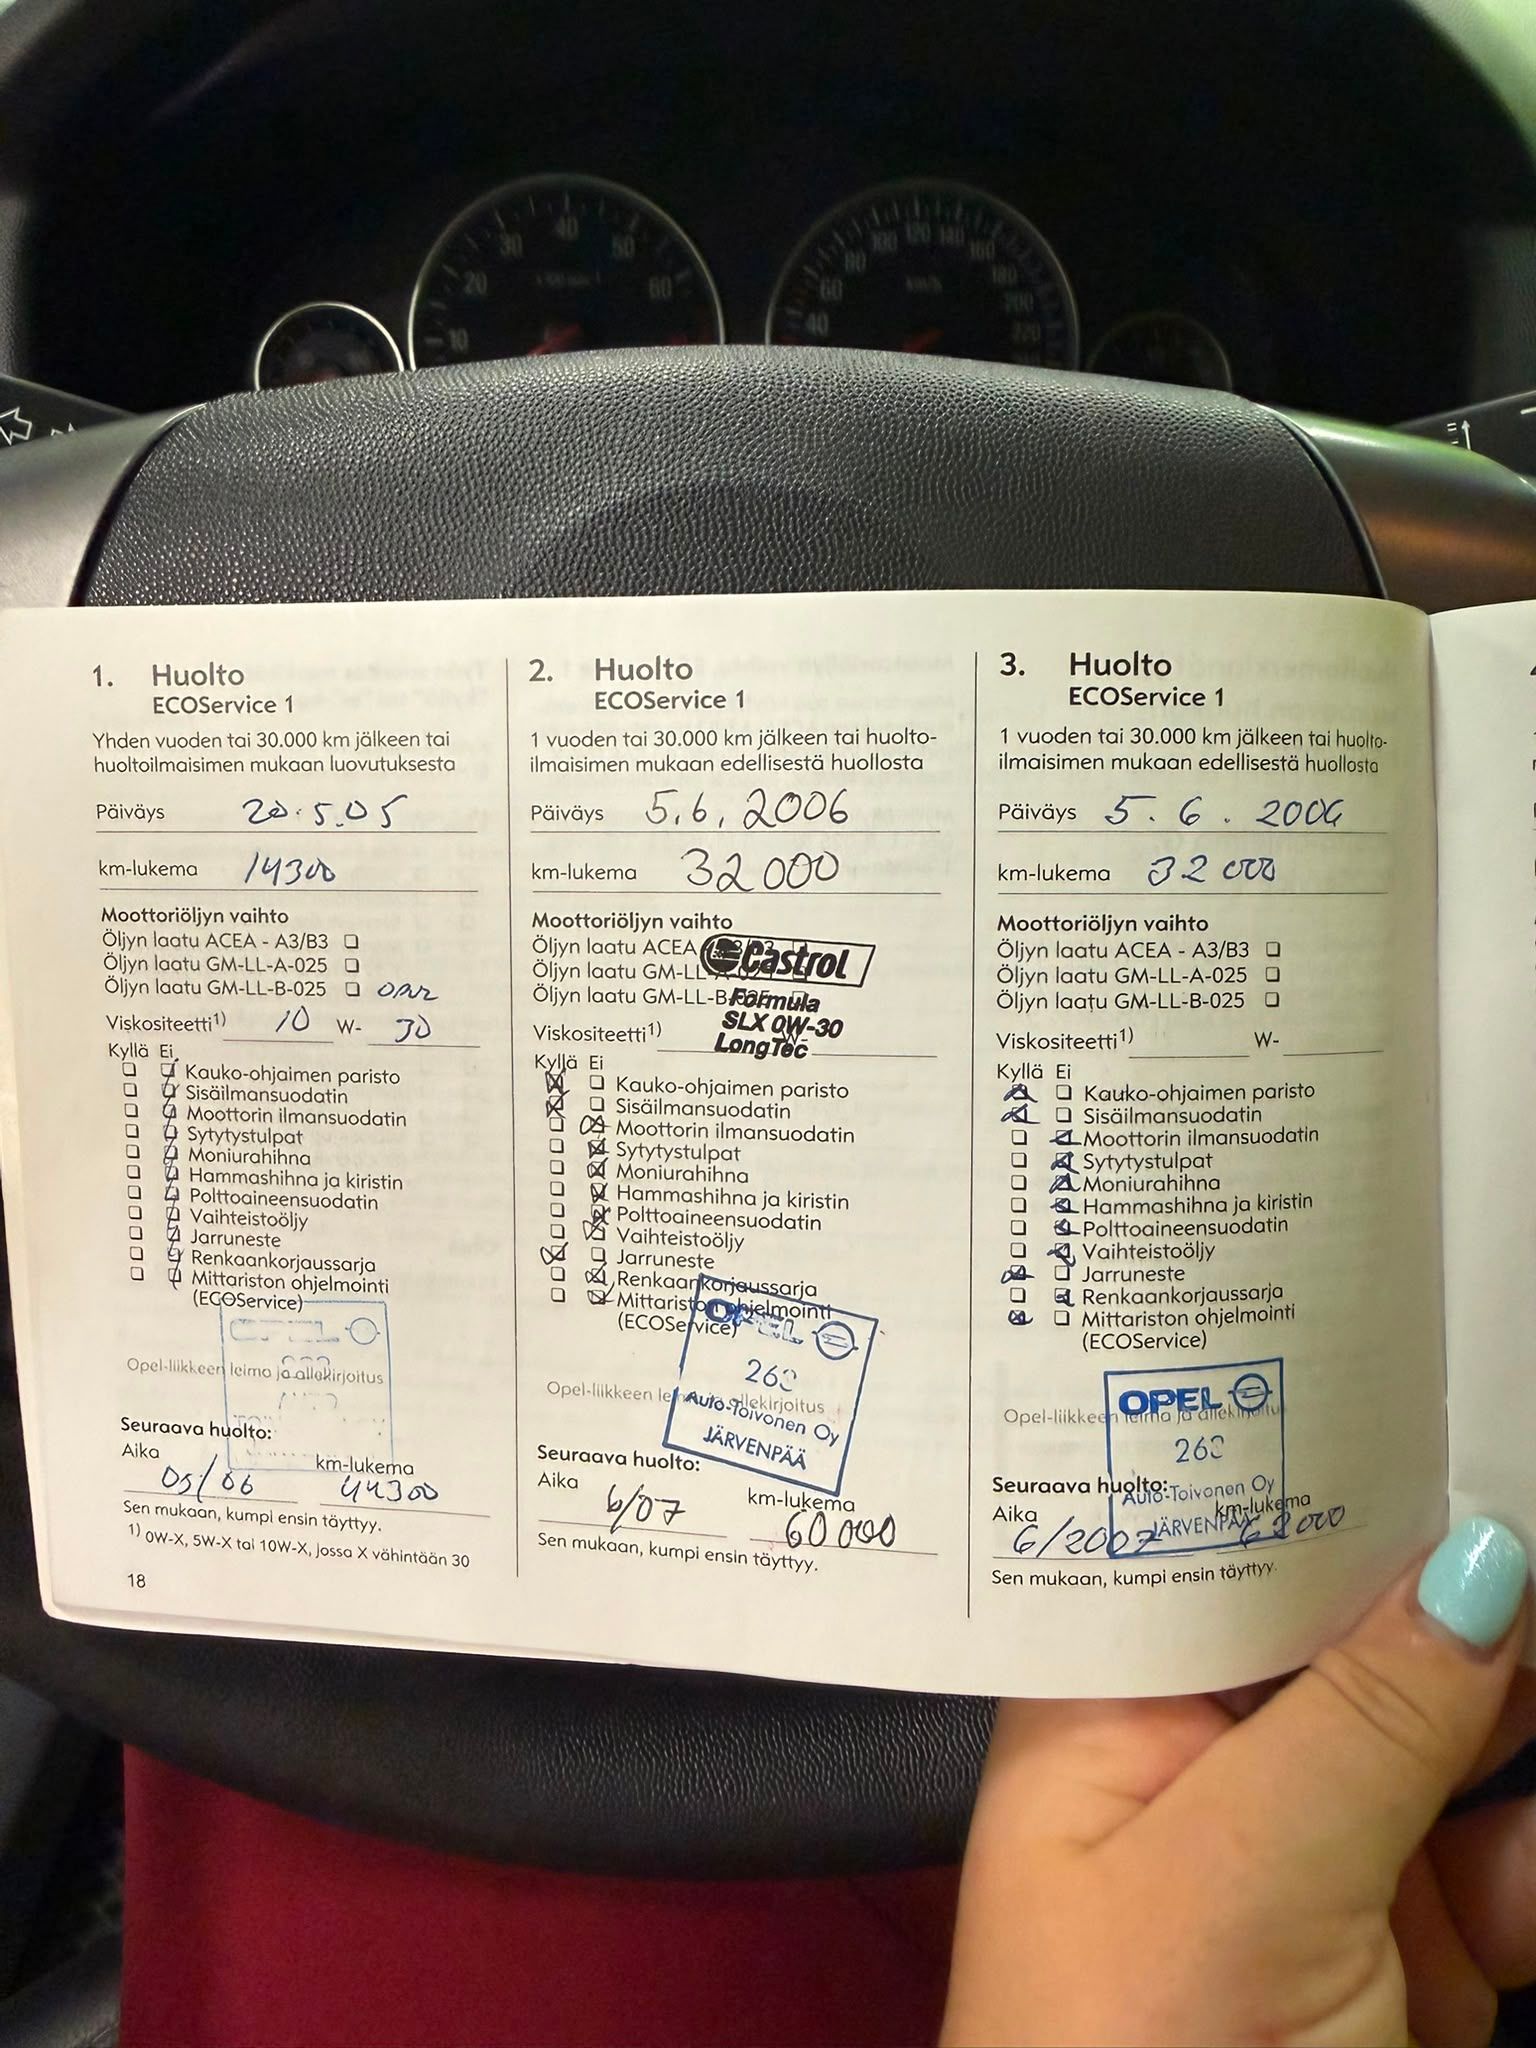 10 20 30 40 50 60
40 60 80 100 120 140 160 180 200 220
km/h
1. Huolto
ECOService 1
Yhden vuoden tai 30.000 km jälkeen tai
huoltoilmaisimen mukaan luovutuksesta
Päiväys 20.5.05
km-lukema 14300
Moottoriöljyn vaihto
Öljyn laatu ACEA - A3/B3
Öljyn laatu GM-LL-A-025
Öljyn laatu GM-LL-B-025
Viskositeetti1) 10 W- 30
Kyllä Ei
Kauko-ohjaimen paristo
Sisäilmansuodatin
Moottorin ilmansuodatin
Sytytystulpat
Moniurahihna
Hammashihna ja kiristin
Polttoaineensuodatin
Vaihteistoöljy
Jarruneste
Renkaankorjaussarja
Mittariston ohjelmointi
(ECOService)
OPEL
Opel-liikkeen leima ja allekirjoitus
Seuraava huolto:
Aika km-lukema
05/06 44300
Sen mukaan, kumpi ensin täyttyy.
1) 0W-X, 5W-X tai 10W-X, jossa X vähintään 30
18
2. Huolto
ECOService 1
1 vuoden tai 30.000 km jälkeen tai huolto-
ilmaisimen mukaan edellisestä huollosta
Päiväys 5.6.2006
km-lukema 32000
Moottoriöljyn vaihto
Öljyn laatu ACEA - A3/B3
Öljyn laatu GM-LL-A-025
Öljyn laatu GM-LL-B-025
Castrol
Formula
SLX 0W-30
LongTec
Viskositeetti1) W-
Kyllä Ei
Kauko-ohjaimen paristo
Sisäilmansuodatin
Moottorin ilmansuodatin
Sytytystulpat
Moniurahihna
Hammashihna ja kiristin
Polttoaineensuodatin
Vaihteistoöljy
Jarruneste
Renkaankorjaussarja
Mittariston ohjelmointi
(ECOService)
OPEL
263
Opel-liikkeen leima ja allekirjoitus
Auto-Toivonen Oy
JÄRVENPÄÄ
Seuraava huolto:
Aika km-lukema
6/07 60000
Sen mukaan, kumpi ensin täyttyy.
3. Huolto
ECOService 1
1 vuoden tai 30.000 km jälkeen tai huolto-
ilmaisimen mukaan edellisestä huollosta
Päiväys 5.6.2006
km-lukema 32000
Moottoriöljyn vaihto
Öljyn laatu ACEA - A3/B3
Öljyn laatu GM-LL-A-025
Öljyn laatu GM-LL-B-025
Viskositeetti1) W-
Kyllä Ei
Kauko-ohjaimen paristo
Sisäilmansuodatin
Moottorin ilmansuodatin
Sytytystulpat
Moniurahihna
Hammashihna ja kiristin
Polttoaineensuodatin
Vaihteistoöljy
Jarruneste
Renkaankorjaussarja
Mittariston ohjelmointi
(ECOService)
OPEL
Opel-liikkeen leima ja allekirjoitus
263
Auto-Toivonen Oy
JÄRVENPÄÄ
Seuraava huolto:
Aika km-lukema
6/2007 62000
Sen mukaan, kumpi ensin täyttyy.